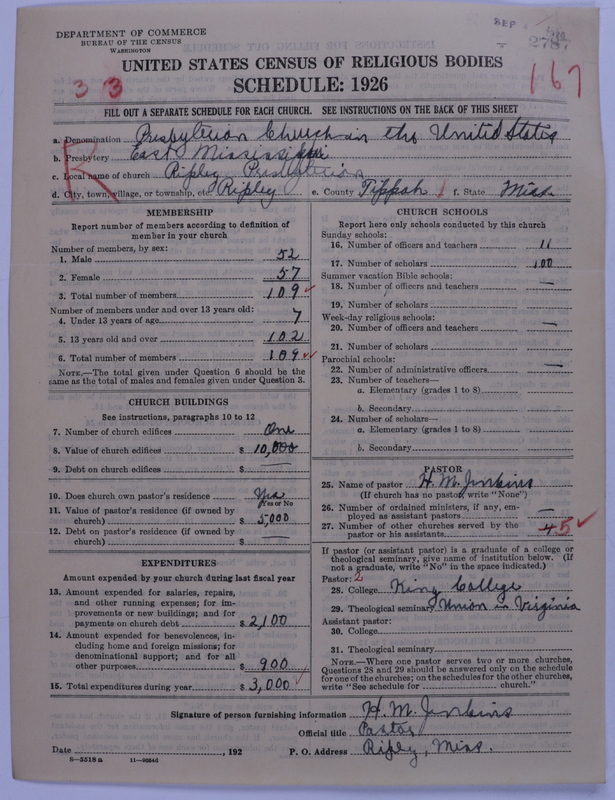 DEPARTMENT OF COMMERCE
BUREAU OF THE CENSUS
WASHINGTON
SEP
2787
UNITED STATES CENSUS OF RELIGIOUS BODIES
SCHEDULE: 1926
3 3
167
FILL OUT A SEPARATE SCHEDULE FOR EACH CHURCH. SEE INSTRUCTIONS ON THE BACK OF THIS SHEET
R
a. Denomination Presbyterian Church in the United States
b. Presbytery East Mississippi
c. Local name of church Ripley Presbyterian
d. City, town, village, or township, etc. Ripley e. County Tippah f. State Miss.
MEMBERSHIP
Report number of members according to definition of
member in your church
Number of members, by sex:
1. Male 52
2. Female 57
3. Total number of members 109
Number of members under and over 13 years old:
4. Under 13 years of age 7
5. 13 years old and over 102
6. Total number of members 109
NOTE.—The total given under Question 6 should be
same as the total of males and females given under Question 3.
CHURCH BUILDINGS
See instructions, paragraphs 10 to 12
7. Number of church edifices One
8. Value of church edifices $ 10,000
9. Debt on church edifices $ —
10. Does church own pastor's residence Yes
Yes or No
11. Value of pastor's residence (if owned by
church) $ 5,000
12. Debt on pastor's residence (if owned by
church) $ —
EXPENDITURES
Amount expended by your church during last fiscal year
13. Amount expended for salaries, repairs,
and other running expenses; for im-
provements or new buildings; and for
payments on church debt $ 2,100
14. Amount expended for benevolences, in-
cluding home and foreign missions; for
denominational support; and for all
other purposes $ 900
15. Total expenditures during year $ 3,000
CHURCH SCHOOLS
Report here only schools conducted by this church
Sunday schools:
16. Number of officers and teachers 11
17. Number of scholars 100
Summer vacation Bible schools:
18. Number of officers and teachers —
19. Number of scholars
Week-day religious schools:
20. Number of officers and teachers —
21. Number of scholars
Parochial schools:
22. Number of administrative officers —
23. Number of teachers—
a. Elementary (grades 1 to 8)
b. Secondary
24. Number of scholars—
a. Elementary (grades 1 to 8)
b. Secondary
PASTOR
25. Name of pastor H. M. Jenkins
(If church has no pastor, write "None")
26. Number of ordained ministers, if any, em-
ployed as assistant pastors —
27. Number of other churches served by the
pastor or his assistants 4 5
If pastor (or assistant pastor) is a graduate of a college or
theological seminary, give name of institution below. (If
not a graduate, write "No" in the space indicated.)
Pastor: 2
28. College King College
29. Theological seminary Union in Virginia
Assistant pastor:
30. College
31. Theological seminary
NOTE.—Where one pastor serves two or more churches,
Questions 28 and 29 should be answered only on the schedule
for one of the churches; on the schedules for the other churches,
write "See schedule for church."
Signature of person furnishing information H. M. Jenkins
Official title Pastor
Date , 192 P. O. Address Ripley, Miss.
8—5518a 11—9254d